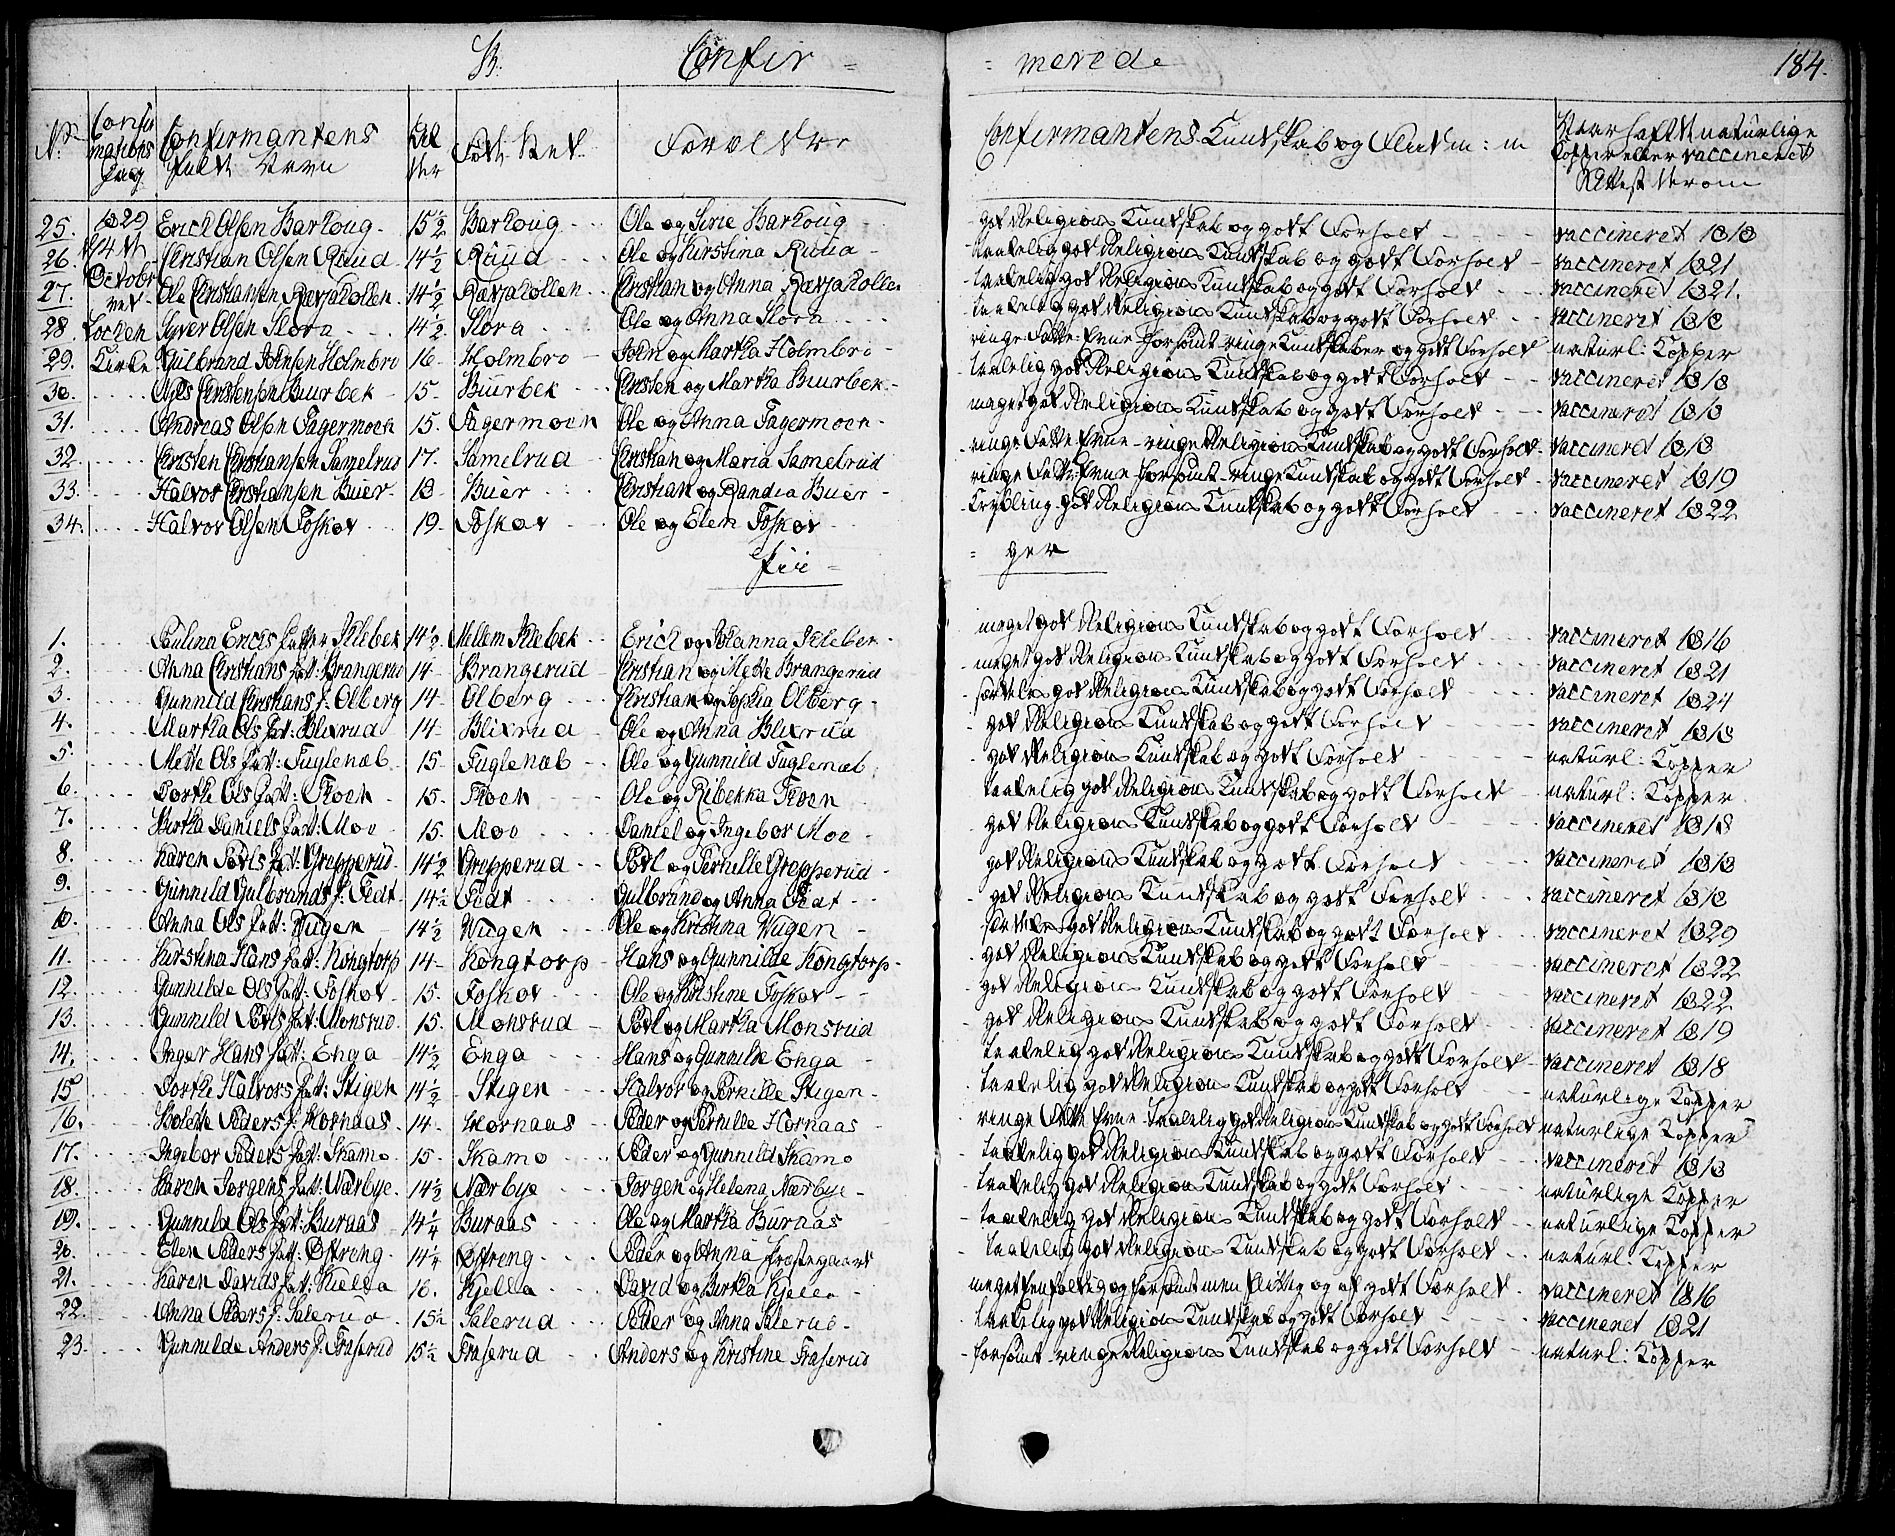 B. Confir = = merede 184.
No. Confirmations Dag Confirmantens fulde Navn Alder Føde Sted Forældre Confirmantens Kundskab og Flid m: m Naar havt de naturlige Kopper eller vaccineret Attest derom
25. 1829 Erich Olsen Barhoug 15½ Barhoug Ole og Sirie Barhoug god Religions Kundskab og godt Forhold vaccineret 1818
26. d/4 de Christian Olsen Ruud 14½ Ruud Ole og Kirstina Ruud taalelig god Religions Kundskab og godt Forhold vaccineret 1821
27. October Ole Christiansen Rævjakollen 14½ Rævjakollen Christian og Anna Rævjakollen taalelig god Religions Kundskab og godt Forhold vaccineret 1821.
28 ved Locken Syver Olsen Slora 14½ Slora Ole og Anna Slora taalelig god Religions Kundskab og godt Forhold vaccineret 1818
29. Kirke Gulbrand Johnsen Holmbro 16 Holmbro John og Martha Holmbro ringe Fatte Evne forsømt ringe Kundskaber og godt Forhold naturl: Kopper
30. Nils Christensen Buurbek 15 Buurbek Christen og Martha Buurbek taalelig god Religions Kundskab og godt Forhold vaccineret 1818
31. Andreas Olsen Fagermoen 15. Fagermoen Ole og Anna Fagermoen meget god Religions Kundskab og godt Forhold vaccineret 1818
32. Christen Christiansen Samelrud 17. Samelrud Christian og Maria Samelrud ringe Fatte Evne - ringe Religions Kundskab og godt Forhold vaccineret 1818
33. Halvor Christiansen Buer 18 Buer Christian og Randia Buer ringe Fatte Evne forsømt ringe Kundskab og godt Forhold vaccineret 1819
34. Halvor Olsen Foskov 19. Foskov Ole og Elen Foskov Krøbling god Religions Kundskab og godt Forhold vaccineret 1822
Pii = = ger
1. Paulina Erichs Datter Klebek 14½ Mellem Klebek Erich og Johanna Klebek meget god Religions Kundskab og godt Forhold vaccineret 1816
2. Anna Christians Dat: Brangerud 14 Brangerud Christian og Mette Brangerud meget god Religions Kundskab og godt Forhold vaccineret 1821
3. Gunnild Christians D: Olberg 14 Olberg Christian og Sophia Olberg særdeles god Religions Kundskab og godt Forhold vaccineret 1824
4. Martha Ols Dat: Blixrud 14 Blixrud Ole og Anna Blixrud god Religions Kundskab og godt Forhold vaccineret 1818
5. Mette Ols Dat: Fuglenæb 15 Fuglenæb Ole og Gunnild Fuglenæb god Religions Kundskab og godt Forhold naturl: Kopper
6. Dorthe Ols Dat: Floen 15. Floen Ole og Ribekka Floen taalelig god Religions Kundskab og godt Forhold naturl: Kopper
7. Birtha Daniels Dat: Moe 15. Moe Daniel og Ingebor Moe god Religions Kundskab og godt Forhold vaccineret 1818
8. Karen Povls Dat: Grepperud 14½ Grepperud Povl og Pernille Grepperud god Religions Kundskab og godt Forhold vaccineret 1818
9. Gunnild Gulbrands D: Fedt 14½ Fedt Gulbrand og Anna Fedt god Religions Kundskab og godt Forhold vaccineret 1818
10. Anna Ols Dat: Vugen 14½ Vugen Ole og Kristina Vugen særdeles god Religions Kundskab og godt Forhold vaccineret 1829
11. Kirstina Hans Dat: Kongtorp 14 Kongtorp Hans og Gunnilde Kongtorp god Religions Kundskab og godt Forhold vaccineret 1822
12. Gunnilde Ols Dat: Foskov 15. Foskov Ole og Kirstine Foskov god Religions Kundskab og godt Forhold vaccineret 1822
13. Gunnild Povls Dat: Monsrud 15. Monsrud Povl og Martha Monsrud god Religions Kundskab og godt Forhold vaccineret 1819
14. Inger Hans Dat: Enga 14½ Enga Hans og Gunnilde Enga taalelig god Religions Kundskab og godt Forhold vaccineret 1818
15 Dorthe Halvors Dat: Stigen 14½ Stigen Halvor og Pernille Stigen taalelig god Religions Kundskab og godt Forhold naturlige Kopper
16. Bolette Peders D: Hornaas 14 Hornaas Peder og Pernille Hornaas ringe Fatte Evne taalelig god Religions Kundskab og godt Forhold naturlige Kopper
17. Ingebor Peders Dat: Skamo 15 Skamo Peder og Gunnild Skamo taalelig god Religions Kundskab og godt Forhold vaccineret 1818
18. Karen Jorgens Dat: Nærbye 14½ Nærbye Jorgen og Helena Nærbye taalelig god Religions Kundskab og godt Forhold naturlige Kopper
19. Gunnild Ols Dat: Buraas 14¼ Buraas Ole og Martha Buraas taalelig god Religions Kundskab og godt Forhold naturlige Kopper
20. Elen Peders Dat: Østreng 14¼ Østreng Peder og Anna Præstegaard taalelig god Religions Kundskab og godt Forhold naturl: Kopper
21. Karen Davids Dat: Kjella 16. Kjella David og Birtha Kjella meget eenfoldig og forsømt men flittig og af godt Forhold vaccineret 1816
22. Anna Peders D: Salerud 15½ Salerud Peder og Anna Salerud taalelig god Religions Kundskab og godt Forhold vaccineret 1821
23. Gunnilde Anders D: Fraserud 15½ Fraserud Anders og Kristine Fraserud forsømt - ringe Religions Kundskab og godt Forhold naturl: Kopper